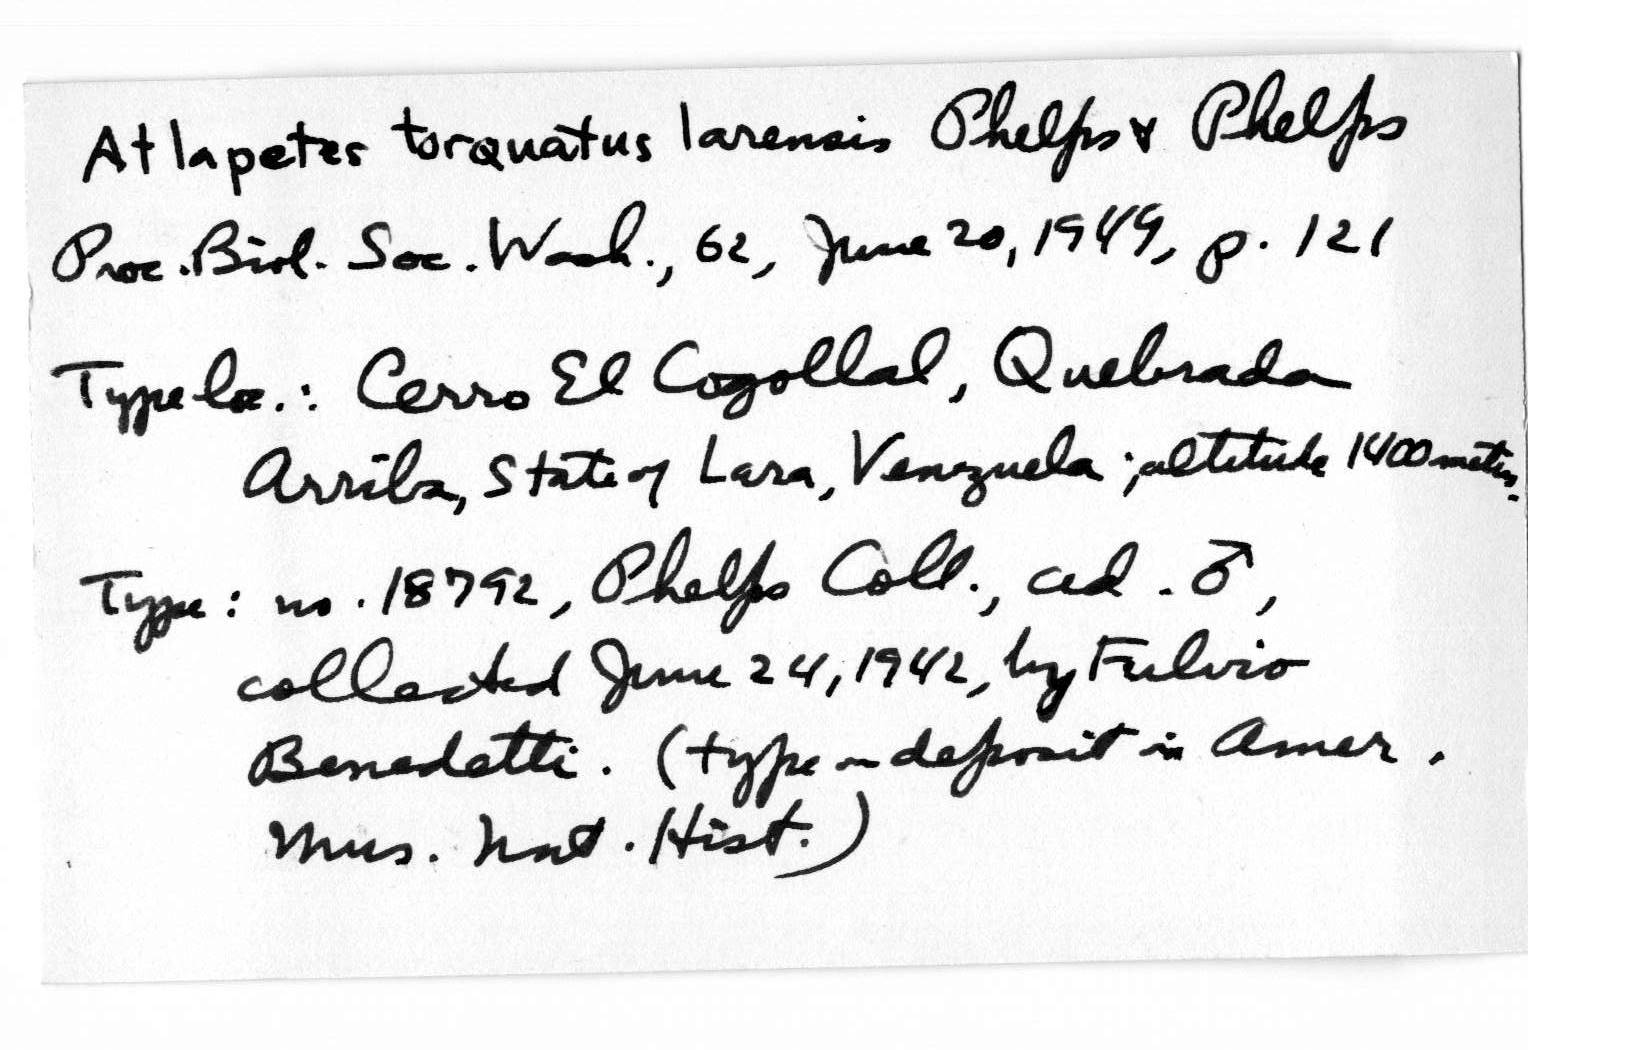 Atlapetes torquatus larensis Phelps & Phelps
Proc. Biol. Soc. Wash., 62, June 20, 1949, p. 121
Type loc.: Cerro El Cogollal, Quebrada
Arriba, State of Lara, Venezuela; altitude 1400 meters.
Type: no. 18792, Phelps Coll., ad. ♂,
collected June 24, 1942, by Fulvio
Benedetti. (type on deposit in Amer.
Mus. Nat. Hist.)